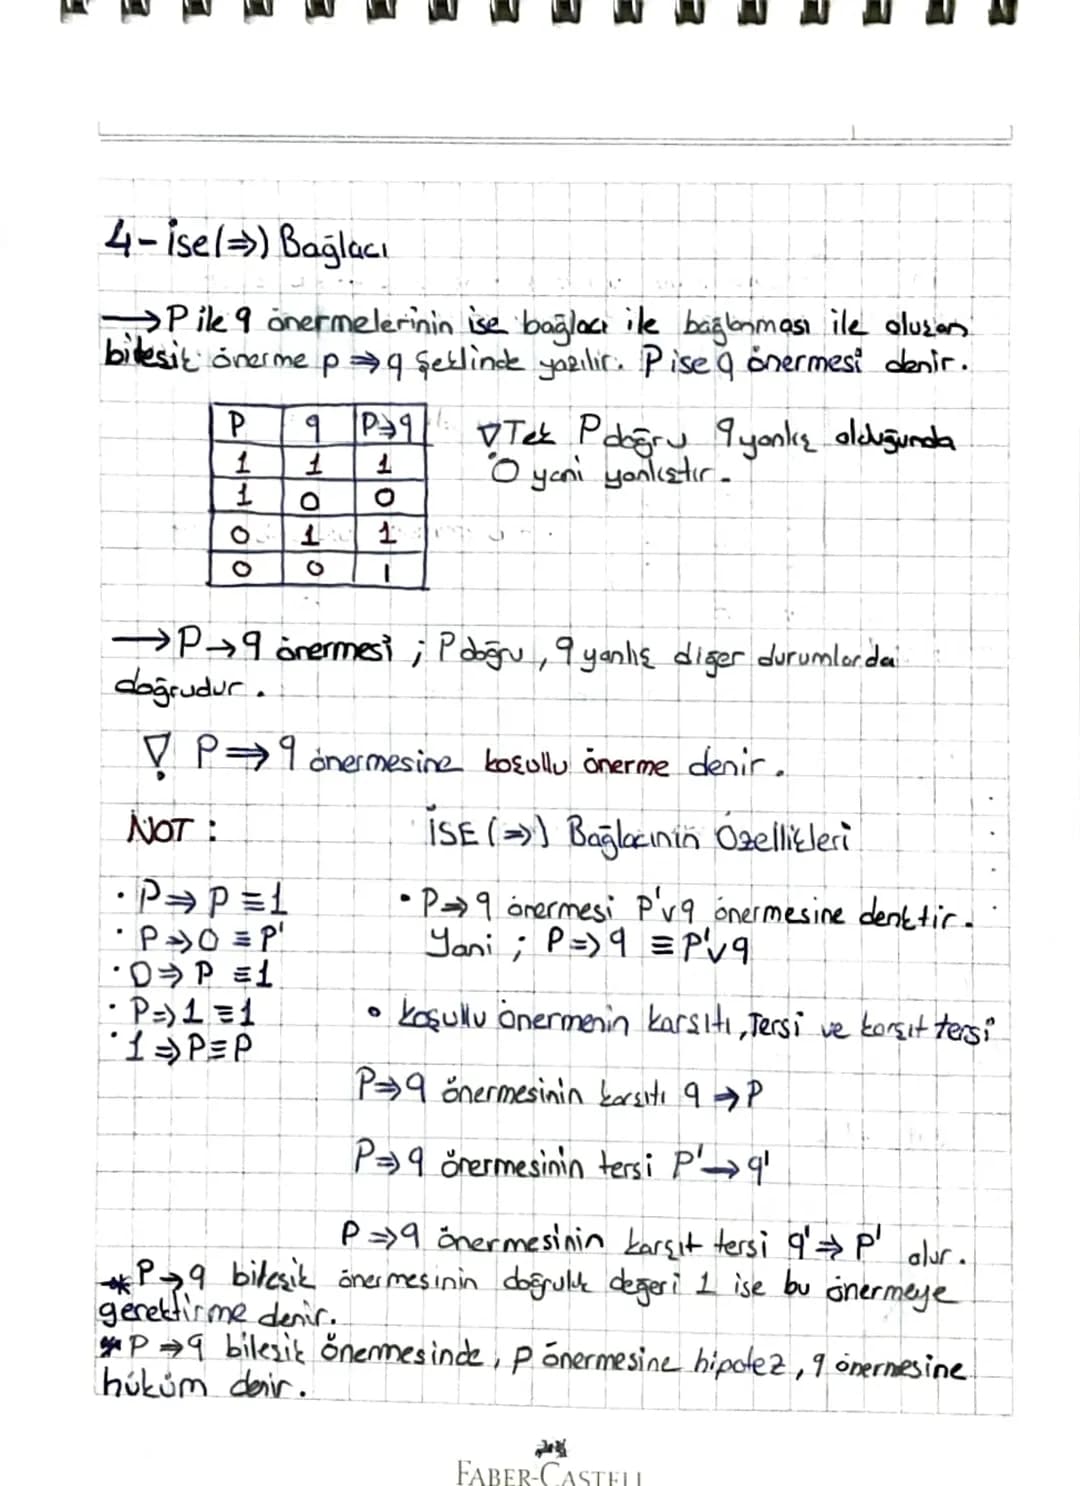 4- İse(⇒) Bağlacı
→ P ile q önermelerinin ise bağlacı ile bağlanması ile oluşan
bileşik önerme p ⇒ q şeklinde yazılır. P ise q önermesi denir.
P q P→q
1 1 1
1 0 0
0 1 1
0 0 1
Tek P doğru q yanlış olduğunda
0 yani yanlıştır.
→ P → q önermesi ; P doğru , q yanlış diğer durumlarda
doğrudur.
P ⇒ q önermesine koşullu önerme denir.
NOT :
· P ⇒ P ≡ 1
· P ⇒ 0 ≡ P'
· 0 ⇒ P ≡ 1
· P ⇒ 1 ≡ 1
· 1 ⇒ P ≡ P
İSE (⇒) Bağlacının Özellikleri
• P ⇒ q önermesi P'vq önermesine denktir.
Yani ; P ⇒ q ≡ P'vq
• Koşullu önermenin karşıtı, Tersi ve karşıt tersi
P ⇒ q önermesinin karşıtı q ⇒ P
P ⇒ q önermesinin tersi P' → q'
P ⇒ q önermesinin karşıt tersi q' ⇒ P' olur.
* P → q bileşik önermesinin doğruluk değeri 1 ise bu önermeye
gerektirme denir.
* P ⇒ q bileşik önermesinde, p önermesine hipotez, q önermesine
hüküm denir.
FABER-CASTELL